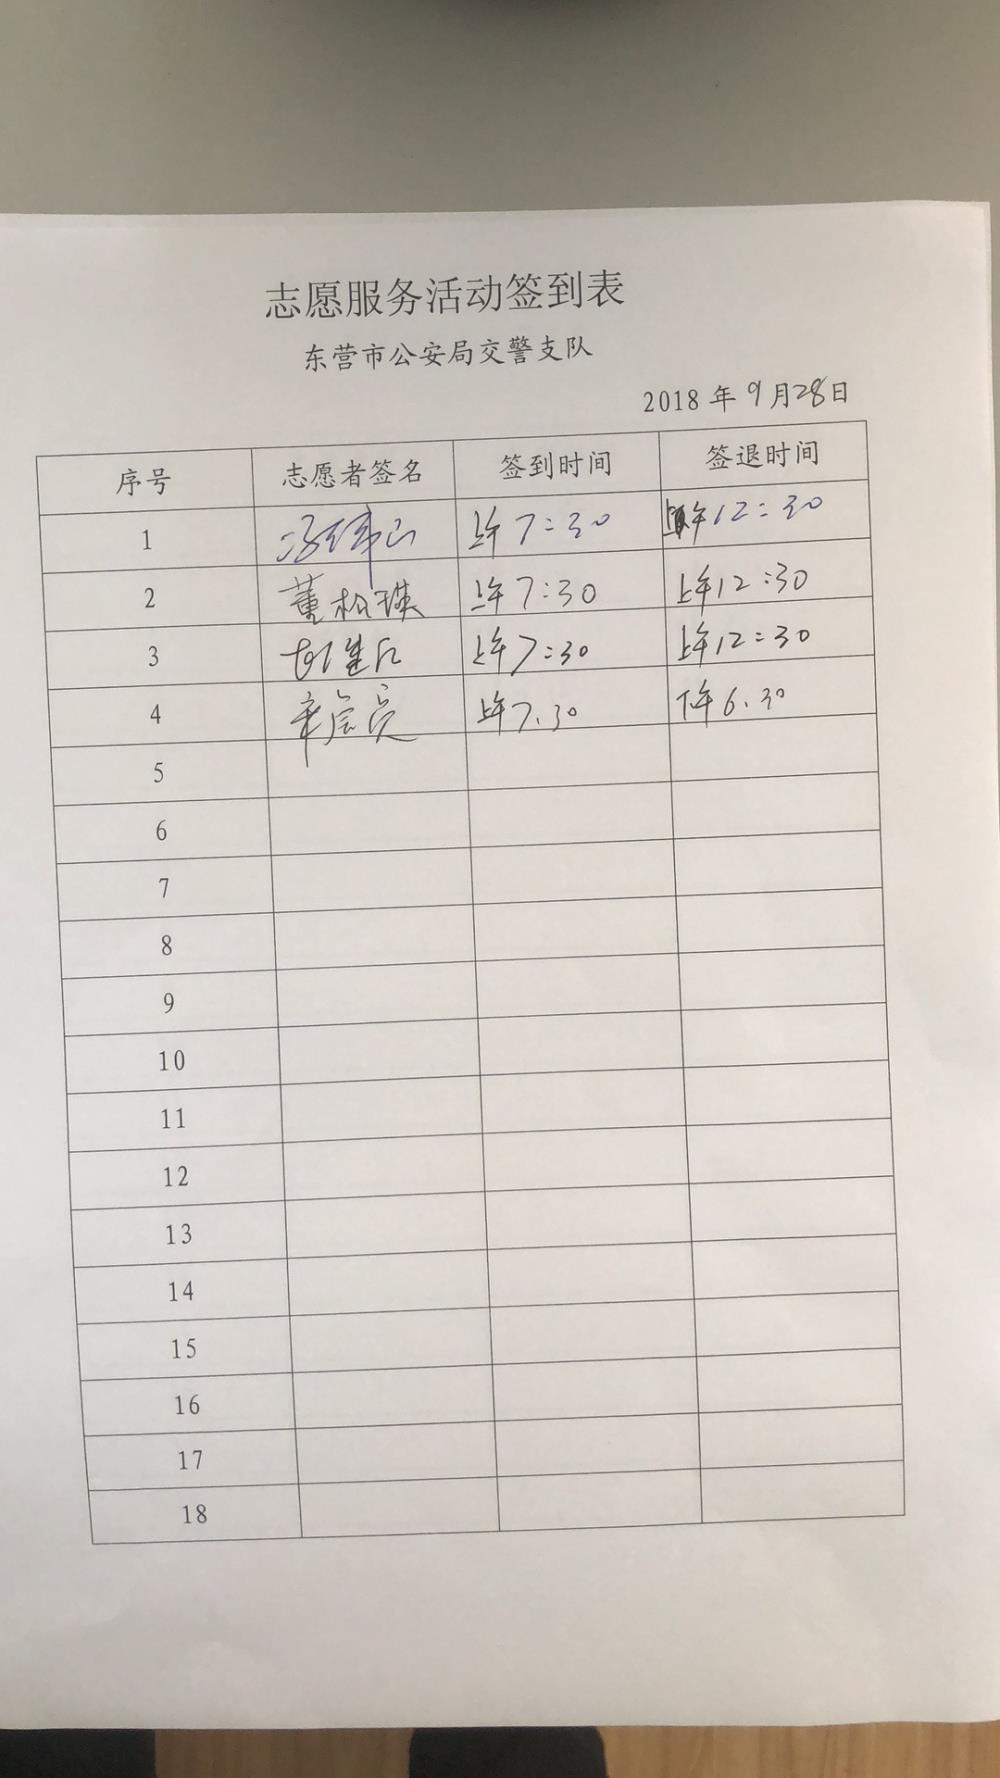 志愿服务活动签到表
东营市公安局交警支队
2018 年 9 月 28 日
序号 志愿者签名 签到时间 签退时间
1 上午 7:30 上午 12:30
2 董 上午 7:30 上午 12:30
3 上午 7:30 上午 12:30
4 上午 7.30 下午 6.30
5
6
7
8
9
10
11
12
13
14
15
16
17
18